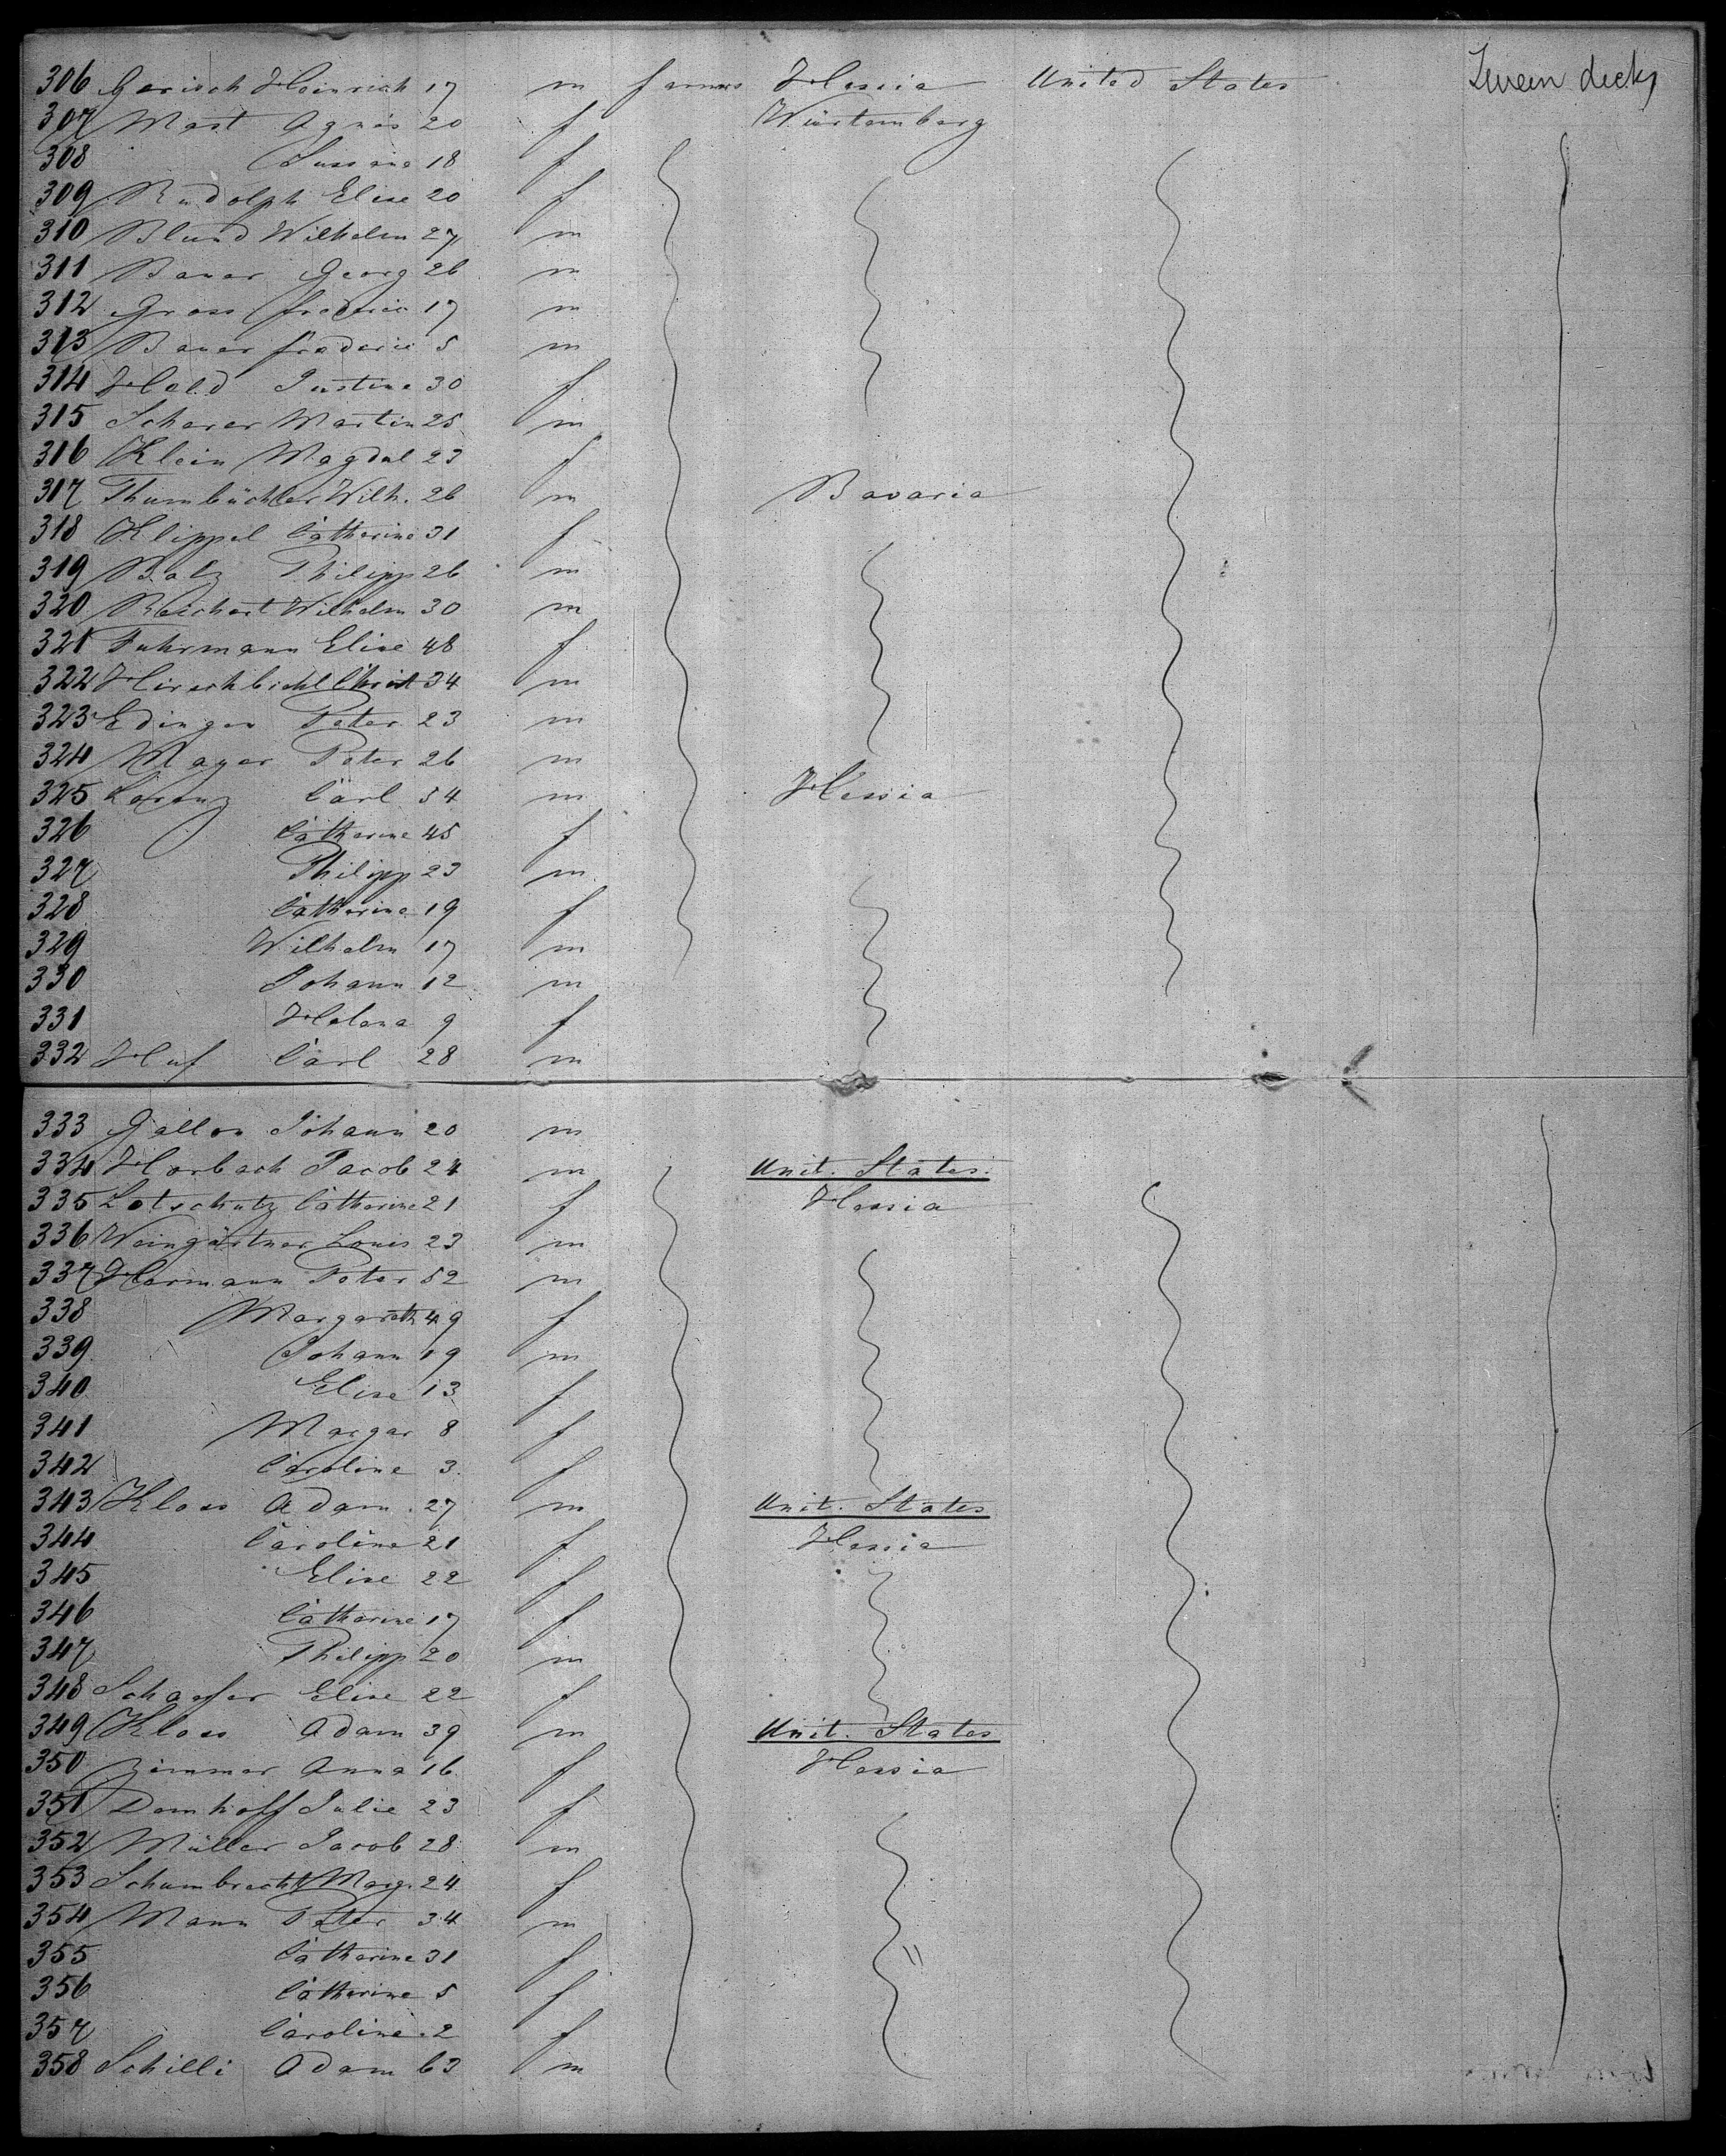 306 Gerisch Heinrich 17 m farmer Hessia United States Tween deck
307 Mast Agnes 20 f Würtemberg
308 Susana 18 f
309 Rudolph Elise 20 f
310 Blund Wilhelm 27 m
311 Bauer Georg 26 m
312 Gross frederic 17 m
313 Bauer frederic 5 m
314 Hold Justine 30 f
315 Scherer Martin 25 m
316 Klein Magdal 23 f
317 Thumbüchler Wilh. 26 m Bavaria
318 Klippel Catherine 31 f
319 Batz Philipp 26 m
320 Reichert Wilhelm 30 m
321 Fuhrmann Elise 48 f
322 Hirschbichl Christ 34 m
323 Edinger Peter 23 m
324 Mayer Peter 26 m
325 Lorenz Carl 54 m Hessia
326 Catherine 45 f
327 Philipp 23 m
328 Catherine 19 f
329 Wilhelm 17 m
330 Johann 12 m
331 Helena 9 f
332 Huf Carl 28 m
333 Gallon Johann 20 m
334 Horbach Jacob 24 m Unit. States.
335 Lotschutz Catherine 21 f Hessia
336 Weingärtner Louis 23 m
337 Hermann Peter 52 m
338 Margareth 49 f
339 Johann 19 m
340 Elise 13 f
341 Margar 8 f
342 Caroline 3 f
343 Kloss Adam 27 m Unit. States
344 Caroline 21 f Hessia
345 Elise 22 f
346 Catherine 17 f
347 Philipp 20 m
348 Schaefer Elise 22 f
349 Kloss Adam 39 m Unit. States
350 Zimmer Anna 16 f Hessia
351 Damhoff Julie 23 f
352 Müller Jacob 28 m
353 Schumbracht Marg. 24 f
354 Mann Peter 34 m
355 Catherine 31 f "
356 Catherine 5 f
357 Caroline 2 f
358 Schilli Adam 63 m